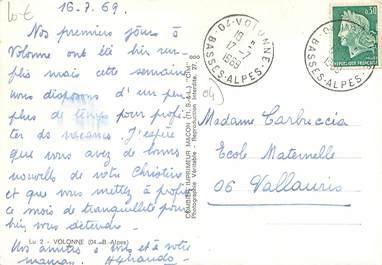 16.7.69.
Nos premiers jours à
Volonne ont été bien rem-
plis mais cette semaine
nous disposons d'un peu
plus de temps pour profi-
ter des vacances. J'espère
que vous avez de bonnes
nouvelles de votre Christine
et que vous mettez à profit
ce mois de tranquillité pour
bien vous détendre.
Nos amitiés à vous et à votre
maman.
Lu 2 - VOLONNE (04.-B.-Alpes)
COMBIER IMPRIMEUR MACON (71.S.-&-L.) "CIM"
Photographie Véritable - Reproduction Interdite.
04-VOLONNE
15 H
17-7
1969
BASSES-ALPES
04-VOLONNE
1969
BASSES-ALPES
0,30
REPUBLIQUE FRANCAISE
04
Madame Carbuccia
Ecole Maternelle
06 Vallauris